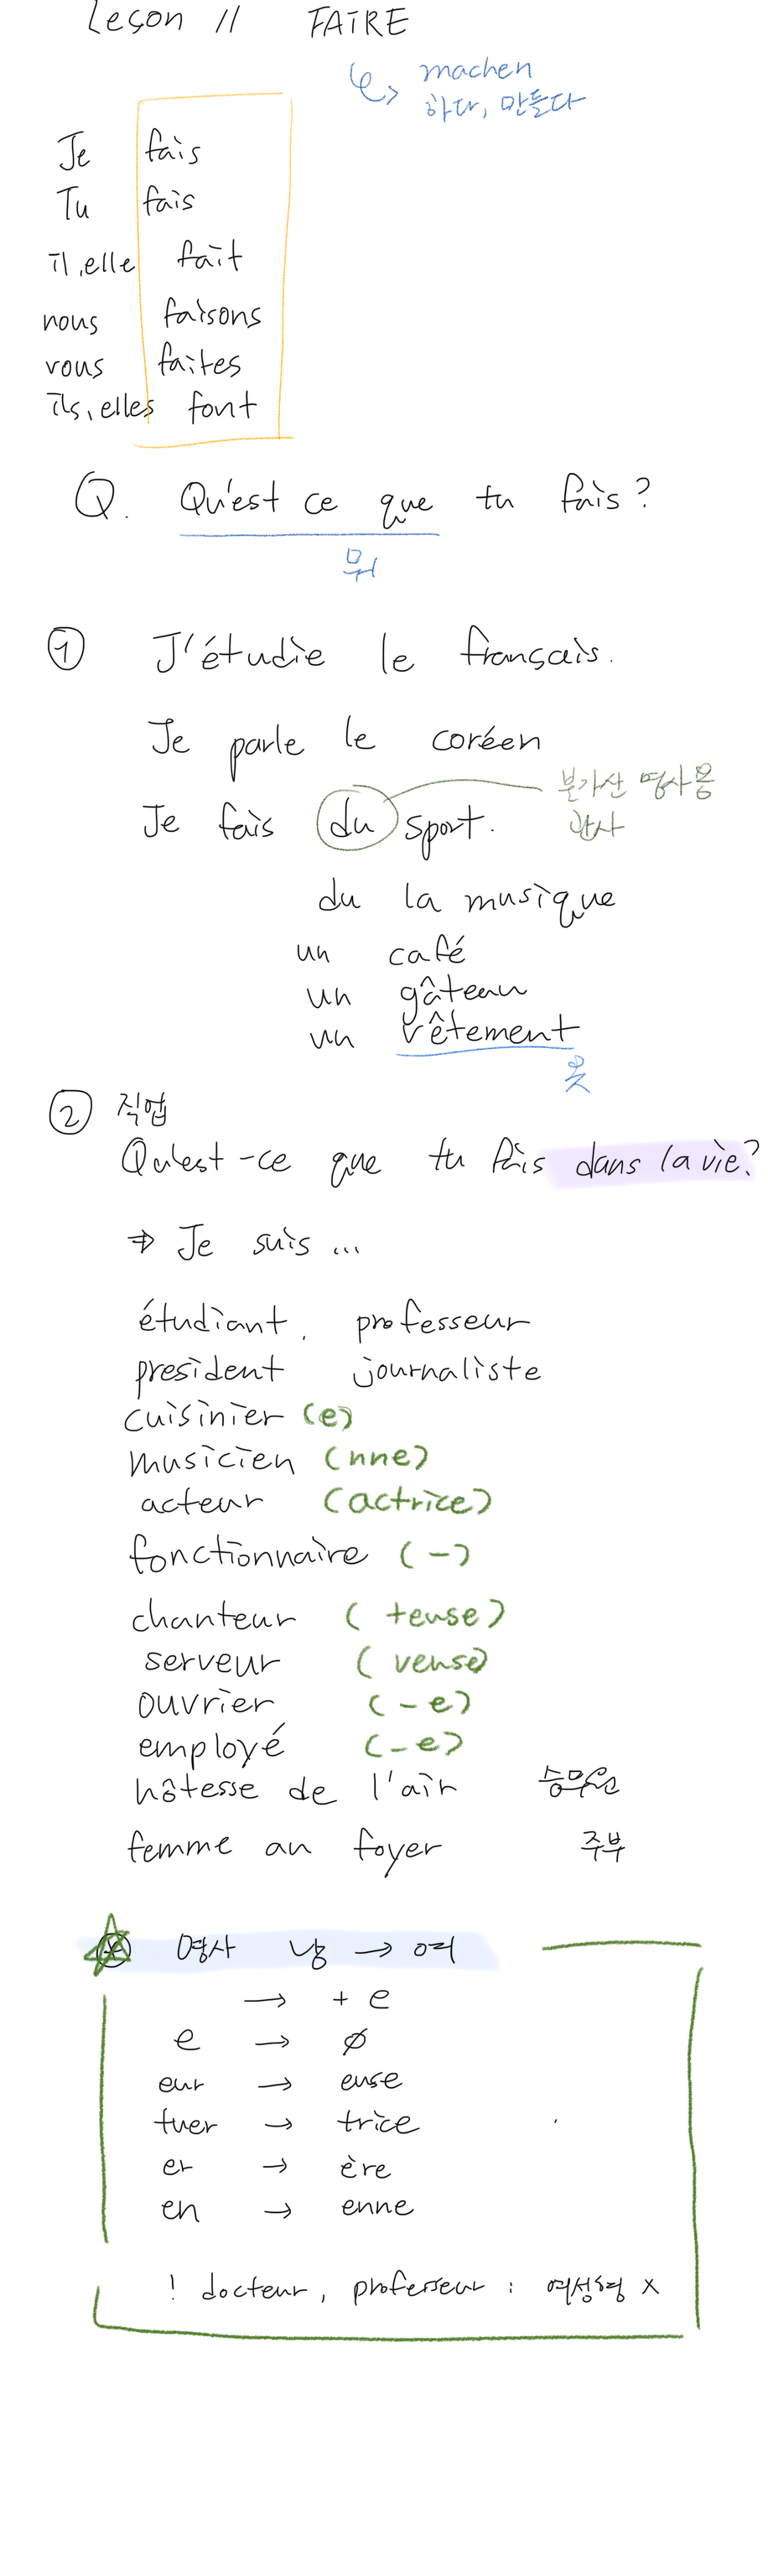 Leçon 11 FAIRE
machen
하다, 만들다
Je fais
Tu fais
il, elle fait
nous faisons
vous faites
ils, elles font
Q. Qu'est ce que tu fais?
뭐
① J'étudie le français.
Je parle le coréen
불가산 명사용
Je fais du sport.
관사
du la musique
un café
un gâteau
un vêtement
옷
② 직업
Qu'est-ce que tu fais dans la vie?
⇒ Je suis ...
étudiant. professeur
president journaliste
cuisinier (e)
musicien (nne)
acteur (actrice)
fonctionnaire (-)
chanteur (teuse)
serveur (veuse)
ouvrier (-e)
employé (-e)
hôtesse de l'air 승무원
femme au foyer 주부
명사 남 → 여
→ + e
e → ∅
eur → euse
tuer → trice
er → ère
en → enne
! docteur, professeur : 여성형 x